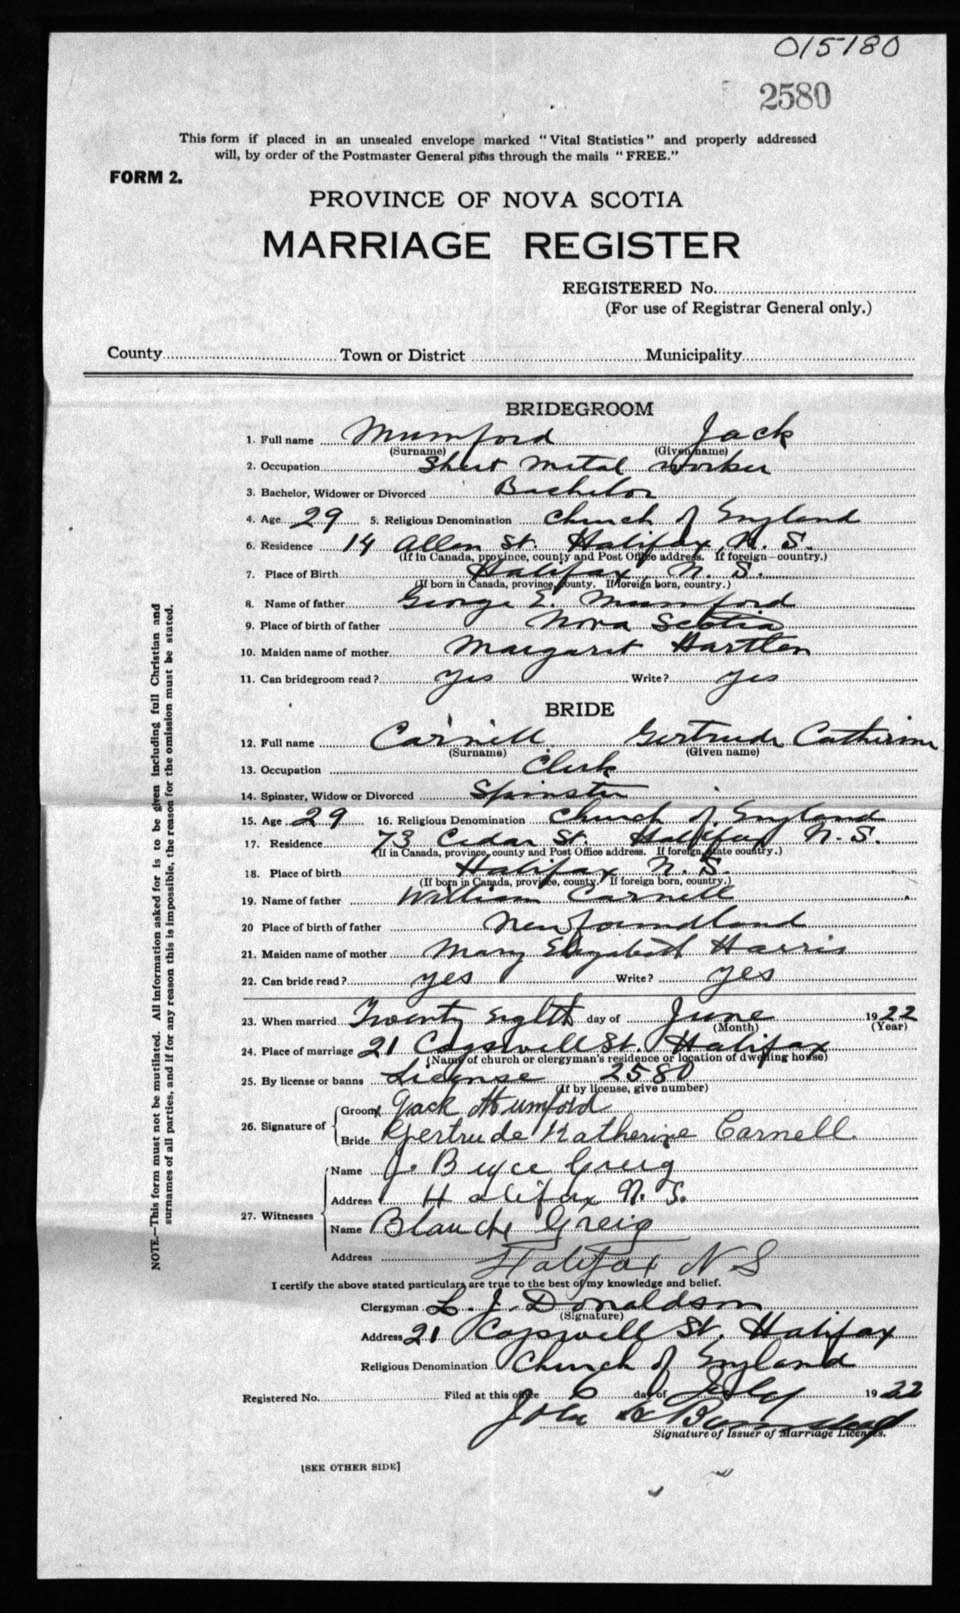 015180
2580
This form if placed in an unsealed envelope marked "Vital Statistics" and properly addressed
will, by order of the Postmaster General pass through the mails "FREE."
FORM 2.
PROVINCE OF NOVA SCOTIA
MARRIAGE REGISTER
REGISTERED No.
(For use of Registrar General only.)
County Town or District Municipality
BRIDEGROOM
1. Full name Mumford Jack
(Surname) (Given name)
2. Occupation Sheet Metal Worker
3. Bachelor, Widower or Divorced Bachelor
4. Age 29 5. Religious Denomination Church of England
6. Residence 14 Allen St. Halifax, N. S.
(If in Canada, province, county and Post Office address. If foreign—country.)
7. Place of Birth Halifax, N. S.
(If born in Canada, province, county. If foreign born, country.)
8. Name of father George E. Mumford
9. Place of birth of father Nova Scotia
10. Maiden name of mother Margaret Hartlen
11. Can bridegroom read? yes Write? yes
BRIDE
12. Full name Carnell Gertrude Catherine
(Surname) (Given name)
13. Occupation Clerk
14. Spinster, Widow or Divorced Spinster
15. Age 29 16. Religious Denomination Church of England
17. Residence 73 Cedar St. Halifax N. S.
(If in Canada, province, county and Post Office address. If foreign, state country.)
18. Place of birth Halifax N. S.
(If born in Canada, province, county. If foreign born, country.)
19. Name of father William Carnell
20 Place of birth of father Newfoundland
21. Maiden name of mother Mary Elizabeth Harris
22. Can bride read? yes Write? yes
23. When married Twenty Eighth day of June 1922
(Month) (Year)
24. Place of marriage 21 Cogswell St. Halifax
(Name of church or clergyman's residence or location of dwelling house)
25. By license or banns License 2580
(If by license, give number)
26. Signature of
Groom Jack Mumford
Bride Gertrude Katherine Carnell
27. Witnesses
Name J. Bryce Greig
Address Halifax N. S.
Name Blanche Greig
Address Halifax N S
I certify the above stated particulars are true to the best of my knowledge and belief.
Clergyman L. J. Donaldson
(Signature)
Address 21 Cogswell St. Halifax
Religious Denomination Church of England
Registered No. Filed at this office 6 day of July 1922
John
Signature of Issuer of Marriage Licenses.
[SEE OTHER SIDE]
NOTE.—This form must not be mutilated. All information asked for is to be given including full Christian and
surnames of all parties, and if for any reason this is impossible, the reason for the omission must be stated.